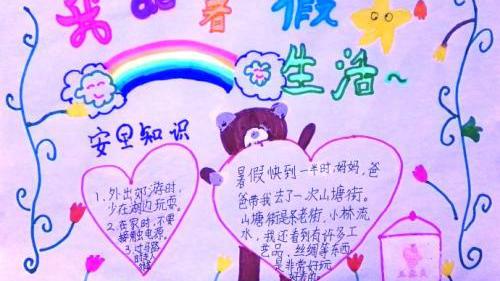 我的暑假
生活~
安里知识
1、外出郊游时,
少在湖边玩耍。
2、在家时,不要
接触电源。
3、过马路
暑假快到一半时,妈妈,爸
爸带我去了一次山塘街。
山塘街是条老街,小林流
水,我还看到有许多工
艺品、丝绸等东西,
是非常好玩